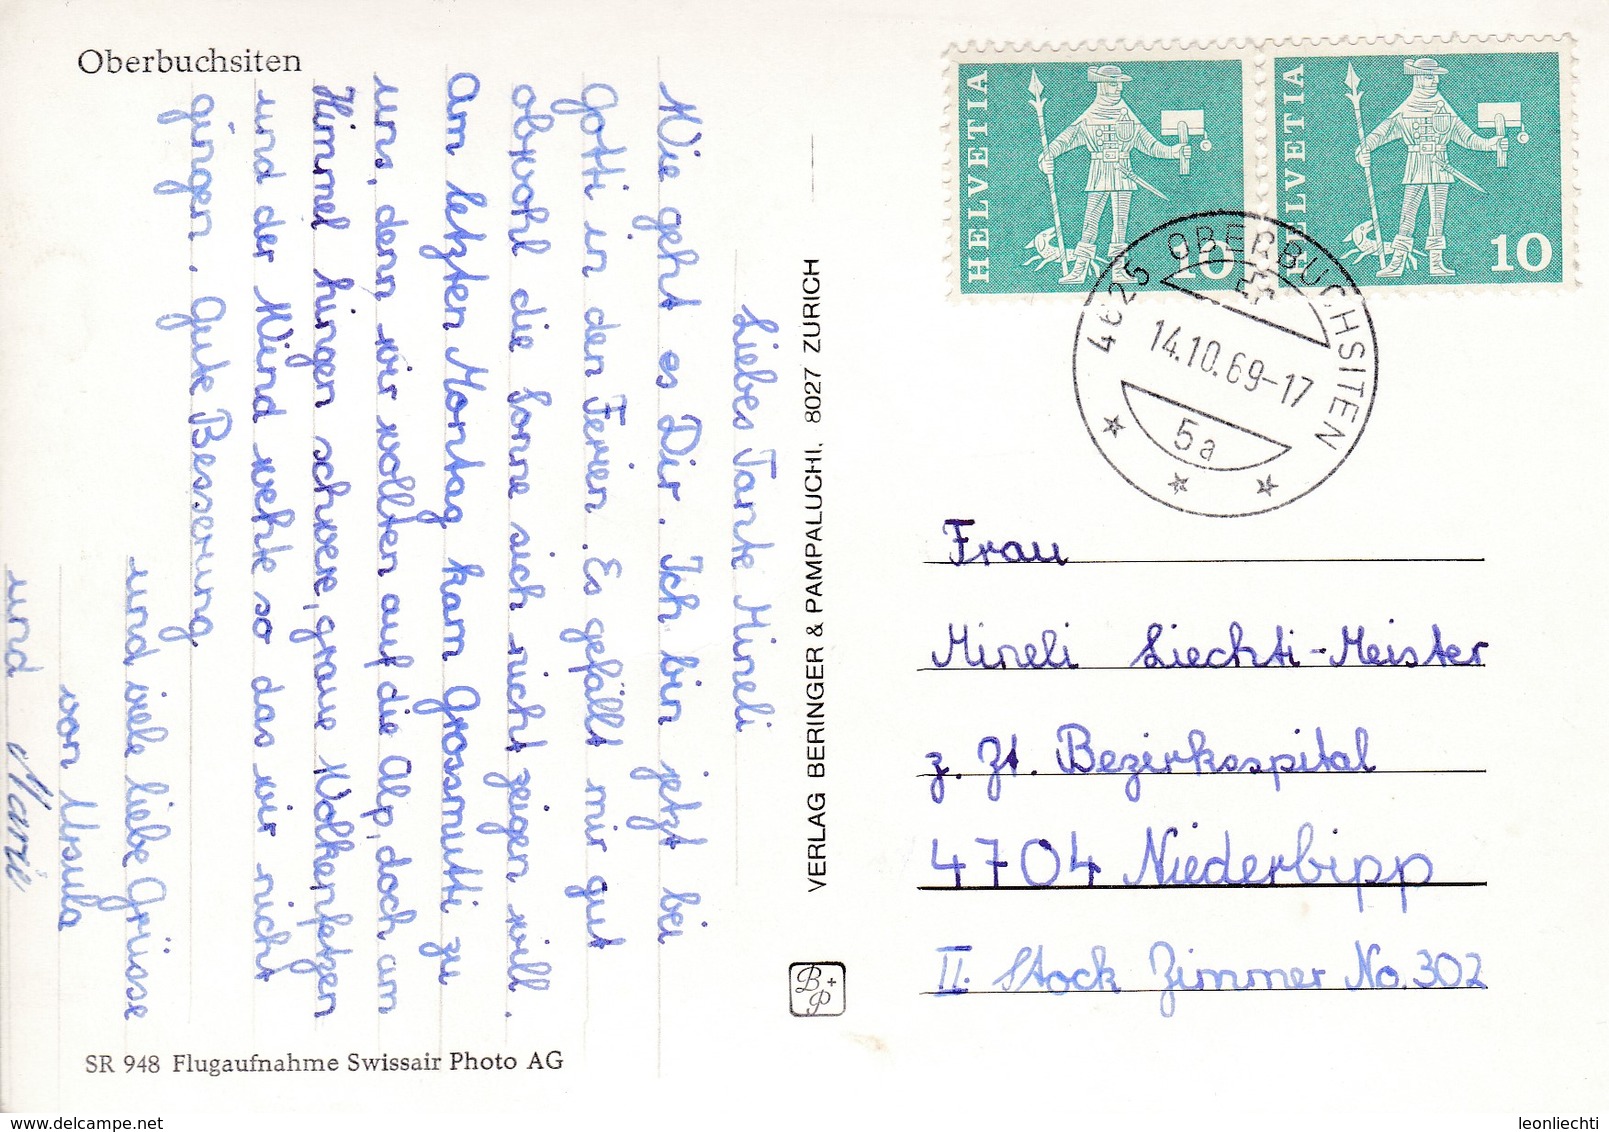 Oberbuchsiten
Liebes Tante Mineli
Wie geht es Dir. Ich bin jetzt bei
Gotti in den Ferien. Es gefällt mir gut
obwohl die Sonne sich nicht zeigen will.
Am letzten Montag kam Grossmutti zu
uns, denn wir wollten auf die Alp, doch am
Himmel hingen schwere, graue Wolkenfetzen
und der Wind wehte so das wir nicht
gingen. Gute Besserung
und viele liebe Grüsse
von Ursula
und Marie
SR 948 Flugaufnahme Swissair Photo AG
VERLAG BERINGER & PAMPALUCHI, 8027 ZÜRICH
B+P
HELVETIA
10
HELVETIA
10
4625 OBERBUCHSITEN
14.10.69-17
5a
Frau
Mineli Liechti-Meister
z. Zt. Bezirksspital
4704 Niederbipp
II. Stock Zimmer No. 302
www.delcampe.net
leonliechti